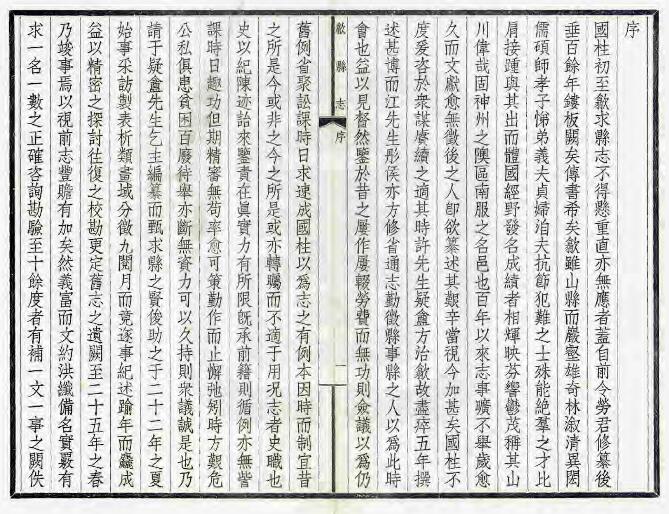 序
國柱初至歙求縣志不得懸重直亦無應者蓋自前令勞君修纂後
垂百餘年鏤板闕矣傳書希矣歙雖山縣而巖壑雄奇林漵清異閎
儒碩師孝子悌弟義夫貞婦洎夫抗節犯難之士殊能絕羣之才比
肩接踵與其出而體國經野發名成績者相煇映芬響鬱茂稱其山
川偉哉固神州之隩區南服之名邑也百年以來志事曠不舉歲愈
久而文獻愈無徵後之人卽欲纂述其艱辛當視今加甚矣國柱不
度爰咨於衆謀賡續之適其時許先生疑盦方治歙故盡瘁五年撰
述甚博而江先生彤侯亦方修省通志勤徵縣事縣之人以爲此時
會也益以見督然鑒於昔之屢作屢輟勞費而無功則僉議以爲仍
歙縣志 序 一
舊例省聚訟課時日求速成國柱以爲志之有例本因時而制宜昔
之所是今或非之今之所是或亦轉矚而不適于用況志者史職也
史以紀陳迹詒來鑒責在眞實力有所限旣承前籍則循例亦無訾
課時日趣功但期精審無苟率愈可策勤作而止懈弛矧時方艱危
公私俱患貧困百廢待舉亦斷無資力可以久持則衆議誠是也乃
請于疑盦先生乞主編纂而甄求縣之賢俊助之于二十二年之夏
始事采訪製表析類畫域分徵九閱月而竟逐事紀述踰年而麤成
益以精密之探討往復之校勘更定舊志之遺闕至二十五年之春
乃竣事焉以視前志豐贍有加矣然義富而文約洪纖備名實覈有
求一名一數之正確咨詢勘驗至十餘度者有補一文一事之闕佚